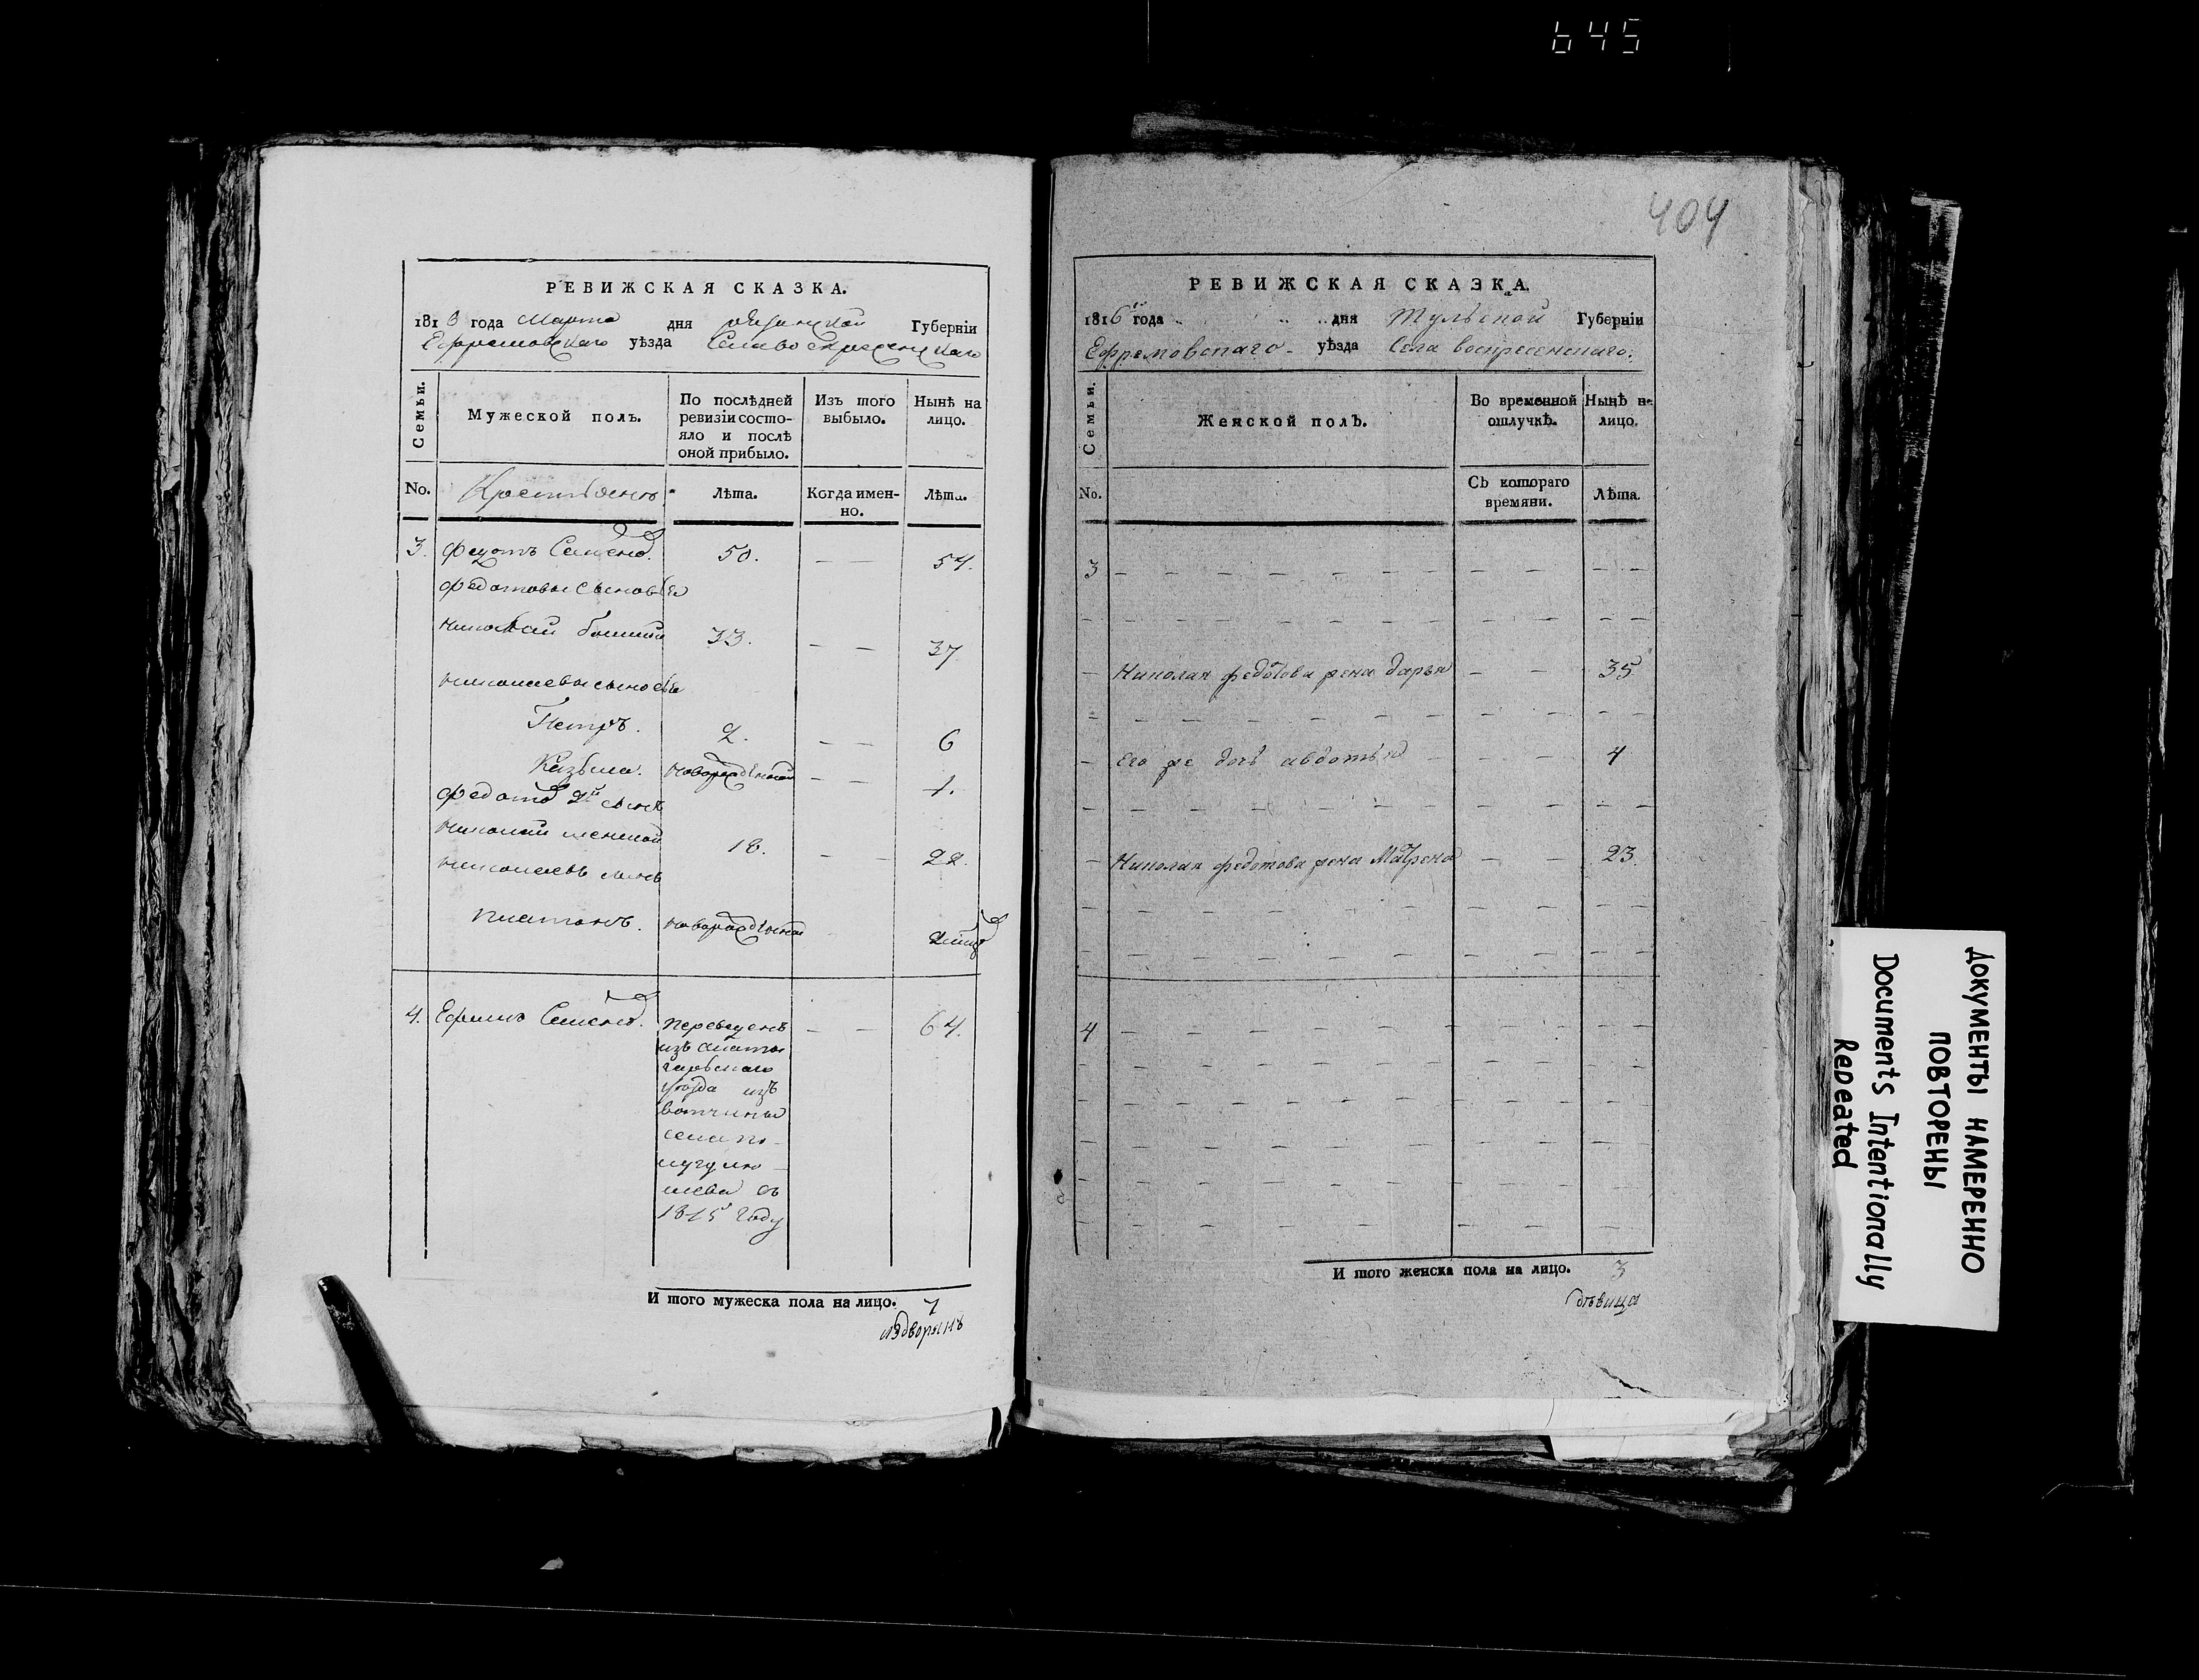 645
404
РЕВИЖСКАЯ СКАЗКА.
1816 года Марта дня Губернїи
Ефремовскаго уѣзда Села воскресенскаго
Семьи.
Мужеской полъ.
По послѣдней
ревизїи состо-
яло и послѣ
оной прибыло.
Изъ того
выбыло.
Нынѣ на
лицо.
No. Крестьянъ Лѣта. Когда имен-
но.
Лѣта.
3. Федотъ Семенов. 50. — — 54.
Федотовы сыновья
Николай большой 33. — — 37
Николаевы сыновья
Петръ. 2. — — 6
Казьма. новорожденной — — 1.
Федотов 2й сынъ
Николай меншой 18. — — 22.
Николаевъ сынъ
Платонъ. новорожденной
4. Ефимъ Семенов. переведенъ — — 64.
изъ
уѣзда изъ
вотчины
села по-
лугулю-
шева въ
1815 году
И того мужеска пола на лицо. 7
РЕВИЖСКАЯ СКАЗКА.
1816 года дня Тульской Губернїи
Ефремовскаго уѣзда Села воскресенскаго.
Семьи.
Женской полъ.
Во временной
отлучкѣ.
Нынѣ на
лицо.
No.
Съ котораго
времяни.
Лѣта.
3
Николая федотова жена дарья — — 35
Его же дочь авдотья — — 4
Николая федотова жена Матрена — — 23.
4
И того женска пола на лицо. 3
дѣвица
ДОКУМЕНТЫ НАМЕРЕННО
ПОВТОРЕНЫ
Documents Intentionally
Repeated